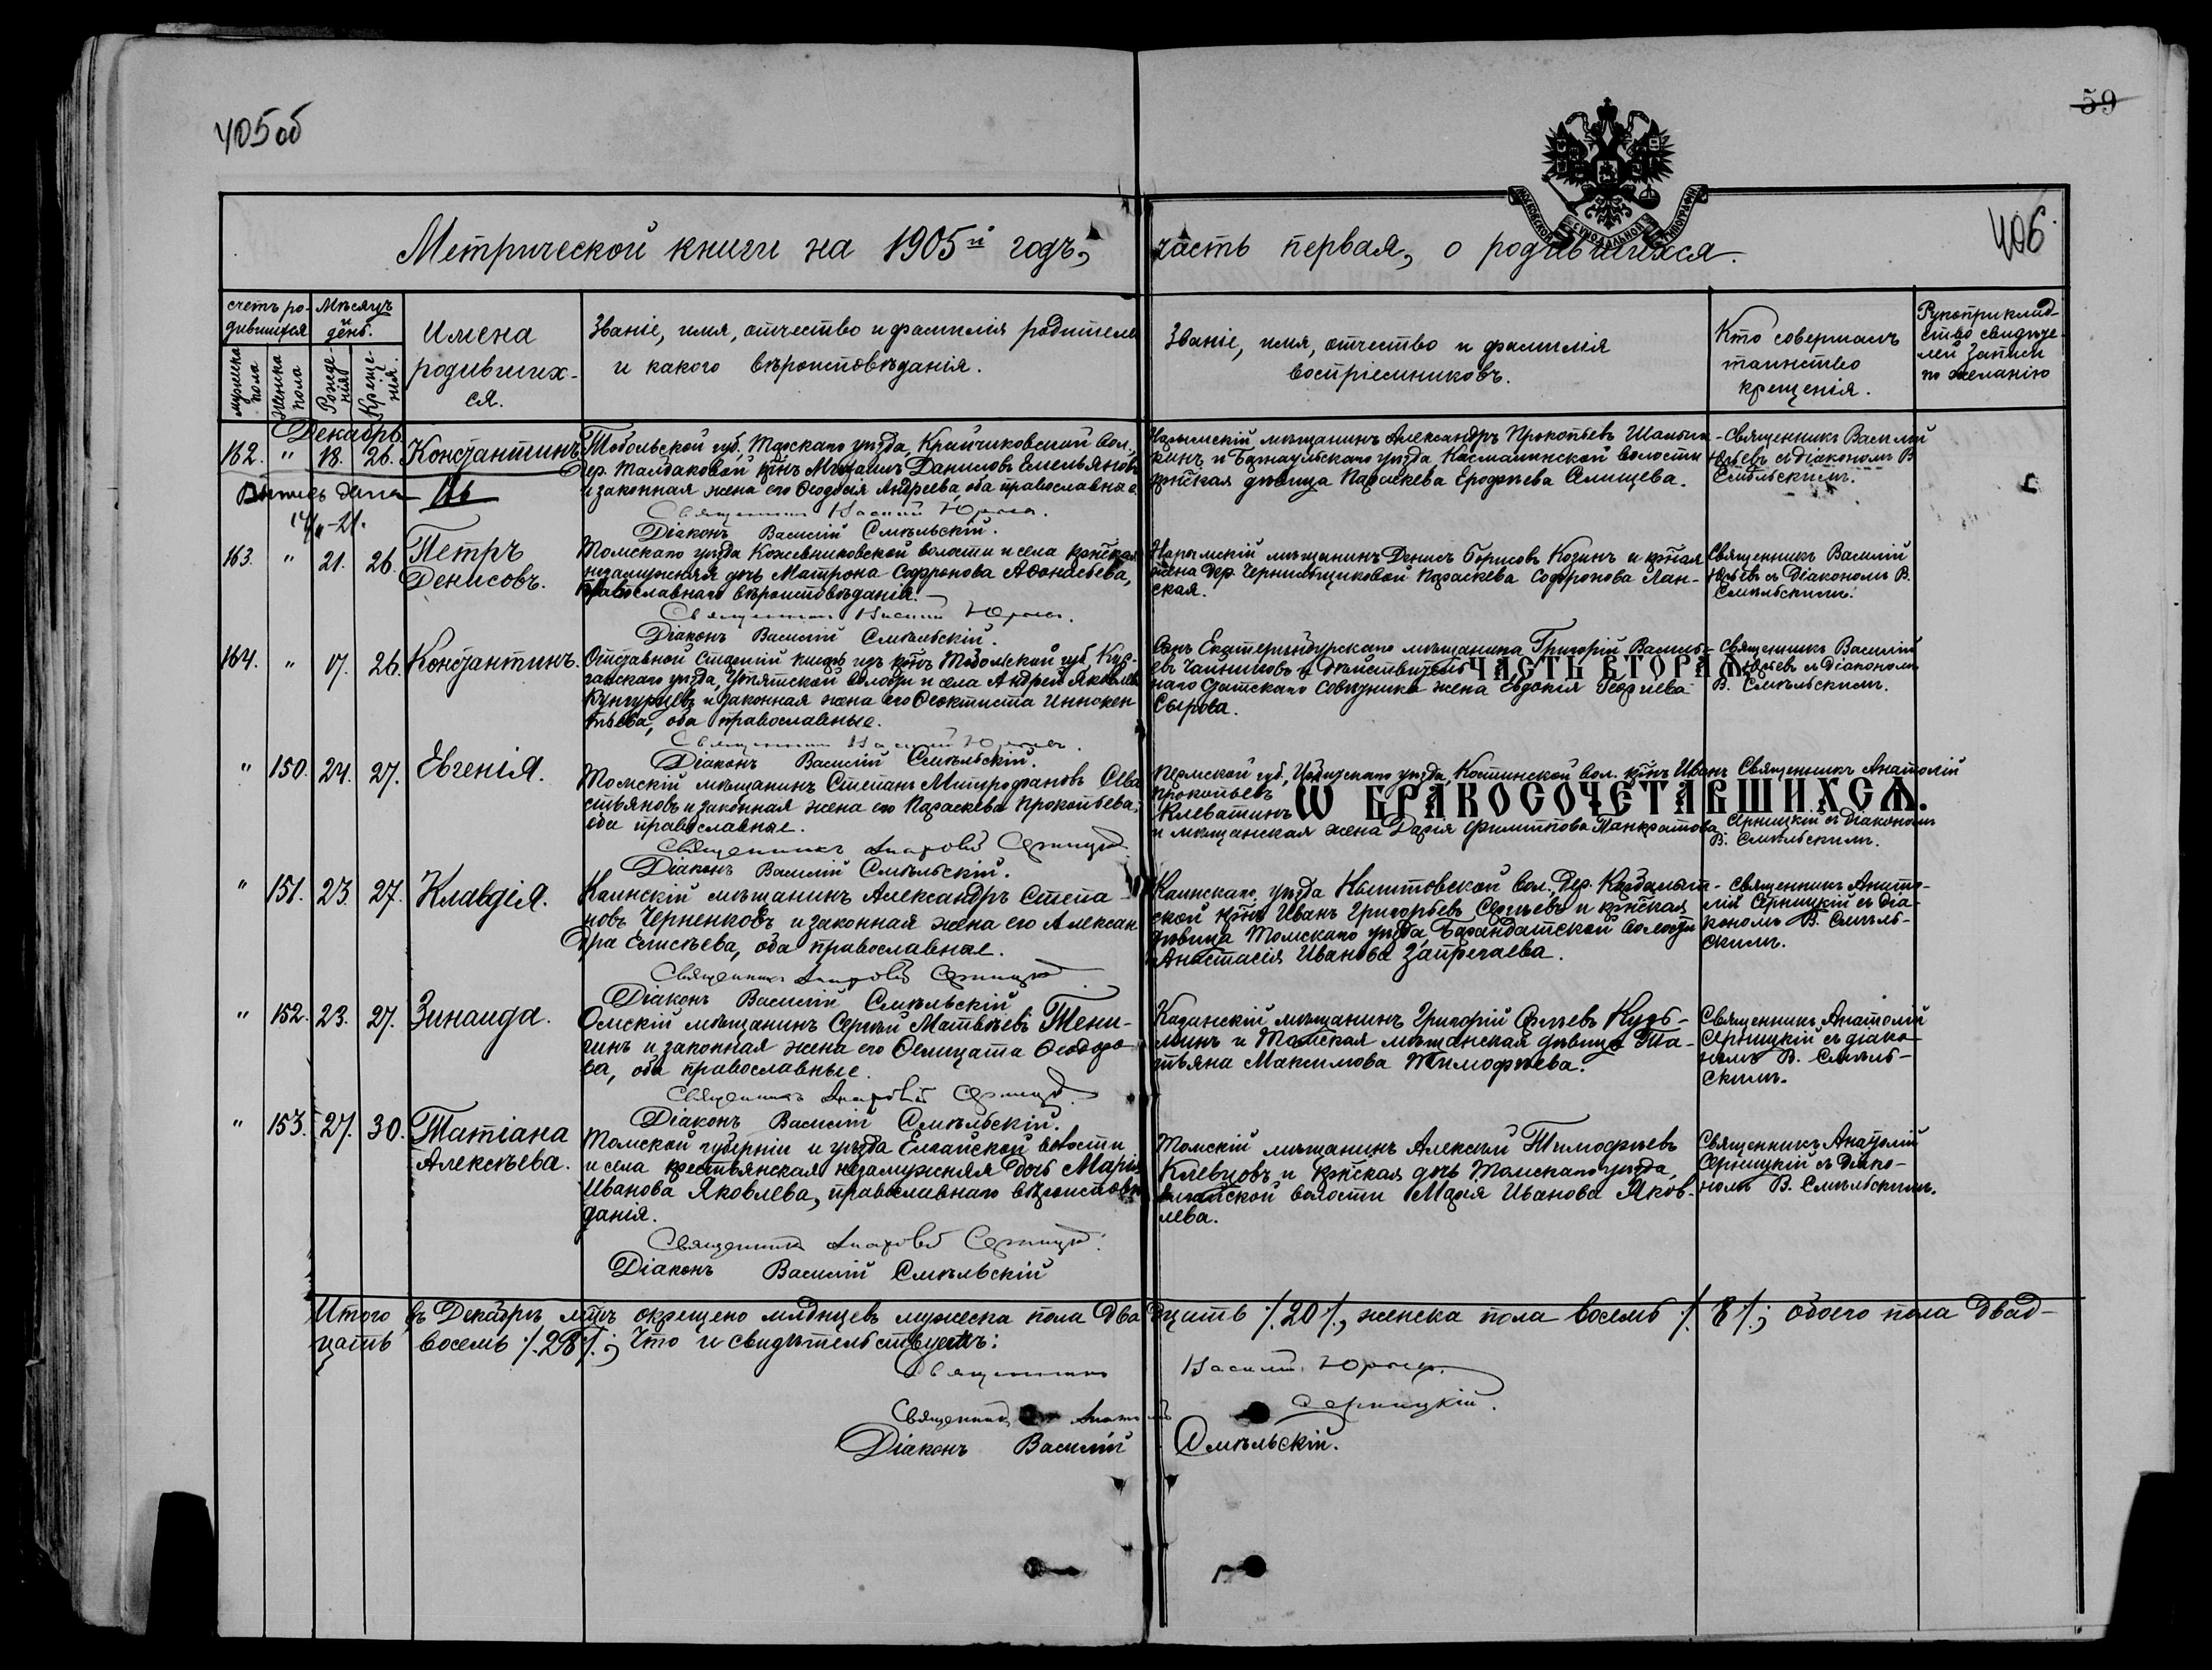 405об
59
МОСКОВСКОЙ СѴНОДАЛЬНОЙ ТИПОГРАФІИ
406
Метрической книги на 1905й годъ, часть первая, о родившихся.
счетъ ро-
дившихся
мужеска пола
женска пола
Мѣсяцъ
и
день.
Рожде-
нія
Креще-
нія.
Имена
родивших-
ся.
Званіе, имя, отчество и фамилія родителей
и какого вѣроисповѣданія.
Званіе, имя, отчество и фамилія
воспріемниковъ.
Кто совершалъ
таинство
крещенія.
Рукоприклад-
ство свидѣте-
лей записи
по желанію
Декабрь.
162. " 18. 26. Константинъ
Тобольской губ., Тарскаго уѣзда, Крайчиковской вол.,
дер. Талдаковой крнъ Михаилъ Даниловъ Емельяновъ
и законная жена его Ѳеодосія Андреева, оба православные.
Священникъ Василій Юрьевъ.
Діаконъ Василій Смѣльскій.
Нарымскій мѣщанинъ Александръ Прокопьевъ
кинъ и Барнаульскаго уѣзда Касмалинской волости
крнская дѣвица Параскева Ерофѣева Слищева.
Священникъ Василій
Юрьевъ съ діакономъ В.
Смѣльскимъ.
163. " 21. 26. Петръ
Денисовъ.
Томскаго уѣзда Кожевниковской волости и села крнская
незамужняя дочь Матрона Софронова Аѳонасьева,
православнаго вѣроисповѣданія.
Священникъ Василій Юрьевъ.
Діаконъ Василій Смѣльскій.
Нарымскій мѣщанинъ Денисъ Борисовъ Козинъ и крнская
жена дер. Чернильщиковой Параскева Софронова Лан-
ская.
Священникъ Василій
Юрьевъ съ діакономъ В.
Смѣльскимъ.
164. " 17. 26. Константинъ.
Отставной изъ крнъ Тобольской губ., Кур-
ганскаго уѣзда, Утятской волости и села Андрей Яковлевъ
Кунгурцевъ и законная жена его Ѳеоктиста Иннокен
тьева, оба православные.
Священникъ Василій Юрьевъ.
Діаконъ Василій Смѣльскій.
Сынъ Екатеринбургскаго мѣщанина Григорій Василь-
евъ Чайниковъ и Дѣйствитель
ЧАСТЬ ВТОРАѦ
наго Статскаго Совѣтника жена Евдокія Георгіева
Сырова.
Священникъ Василій
Юрьевъ съ діакономъ
В. Смѣльскимъ.
" 150. 24. 27. Евгенія.
Томскій мѣщанинъ Степанъ Митрофановъ Сева
стьяновъ и законная жена его Параскева Прокопьева,
оба православные.
Священникъ Анатолій Серницкій.
Діаконъ Василій Смѣльскій.
Пермской губ., уѣзда, Костинской вол. крнъ Иванъ
Прокопьевъ
Клеватинъ
Ѡ БРАКОСОЧЕТАВШИХСѦ.
и мѣщанская жена Дарія Филиппова Панкратова.
Священникъ Анатолій
Серницкій съ діакономъ
В. Смѣльскимъ.
" 151. 23. 27. Клавдія.
Каинскій мѣщанинъ Александръ Степа
новъ Черненковъ и законная жена его Алексан
дра Елисѣева, оба православные.
Священникъ Анатолій Серницкій
Діаконъ Василій Смѣльскій
Каинскаго уѣзда Кыштовской вол., дер.
ской крнъ Иванъ Григорьевъ Сергѣевъ и крнская
дѣвица Томскаго уѣзда, Барандатской волости
Анастасія Иванова Запрегаева.
Священникъ Анато-
лій Серницкій съ діа-
кономъ В. Смѣль-
скимъ.
" 152. 23. 27. Зинаида.
Омскій мѣщанинъ Сергѣй Матвѣевъ Тени-
гинъ и законная жена его Фелицата Ѳеодоро
ва, оба православные.
Священникъ Анатолій Серницкій.
Діаконъ Василій Смѣльскій.
Казанскій мѣщанинъ Григорій Сергѣевъ Кузь-
минъ и Томская мѣщанская дѣвица Та-
тьяна Максимова Тимофѣева.
Священникъ Анатолій
Серницкій съ діако-
номъ В. Смѣль-
скимъ.
" 153. 27. 30. Татіана
Алексѣева.
Томской губерніи и уѣзда Елгайской волости
и села крестьянская незамужняя дочь Марія
Иванова Яковлева, православнаго вѣроисповѣ
данія.
Священникъ Анатолій Серницкій.
Діаконъ Василій Смѣльскій
Томскій мѣщанинъ Алексѣй Тимофѣевъ
Клевцовъ и крнская дочь Томскаго уѣзда,
Елгайской волости Марія Иванова Яков-
лева.
Священникъ Анатолій
Серницкій съ діако-
номъ В. Смѣльскимъ.
Итого въ Декабрѣ мцѣ окрещено млднцевъ мужеска пола двадцать /.20/., женска пола восемь /.8/.; обоего пола двад-
цать восемь /.28/.; Что и свидѣтельствуемъ:
Священникъ Василій Юрьевъ.
Священникъ Анатолій Серницкій.
Діаконъ Василій Смѣльскій.